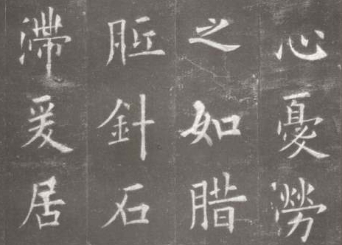 心憂澇
之如腊
胝針石
滯爰居